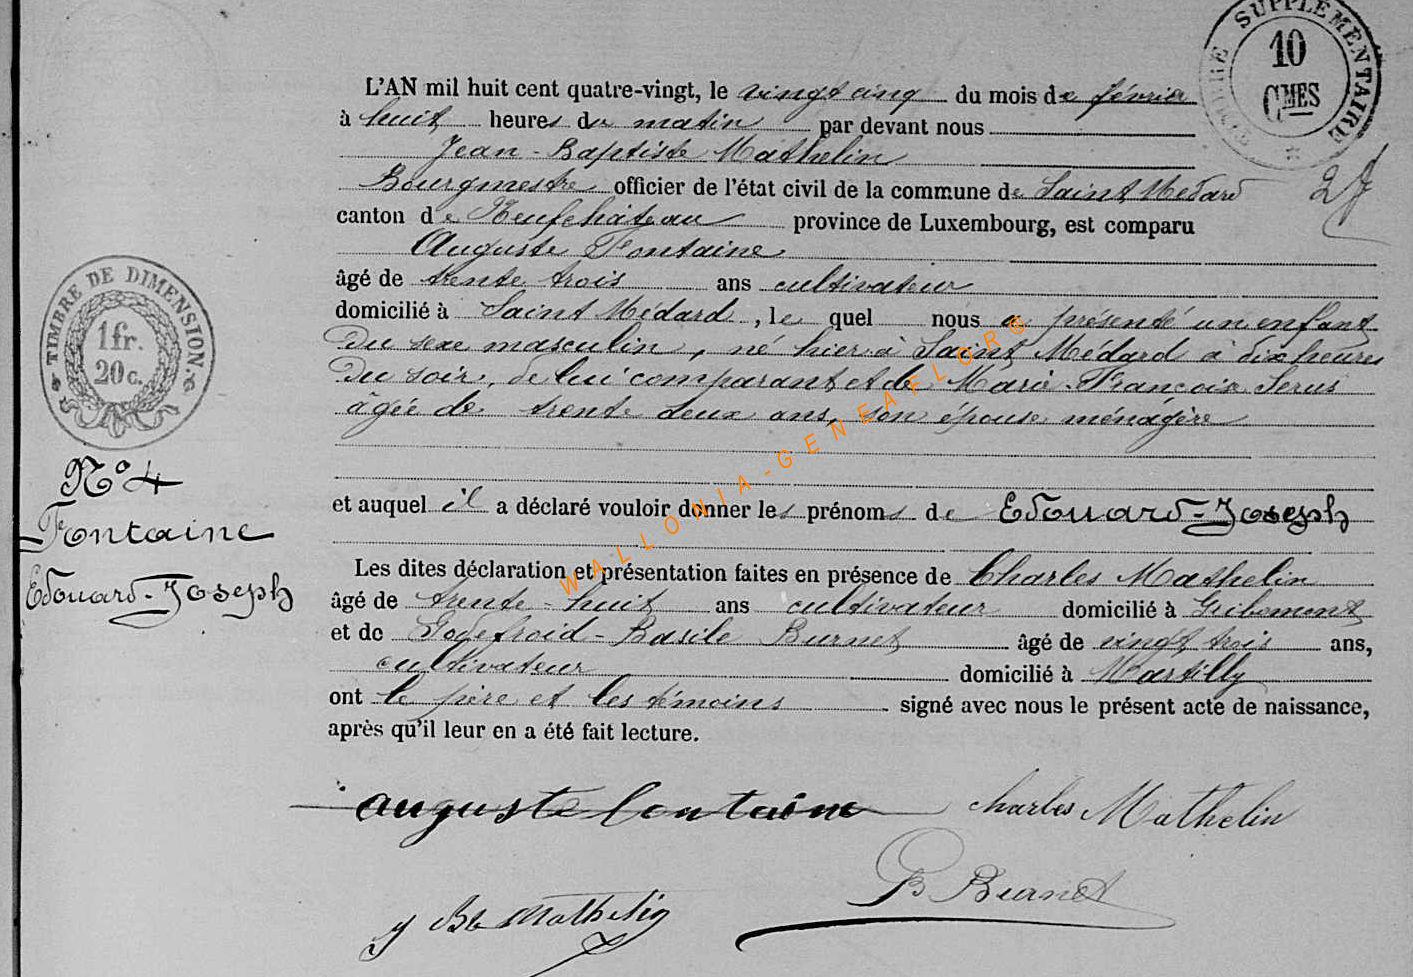 TIMBRE SUPPLÉMENTAIRE
10
CMES
L'AN mil huit cent quatre-vingt, le vingt cinq du mois de février
à huit heures du matin par devant nous
Jean-Baptiste Mathelin
Bourgmestre officier de l'état civil de la commune de Saint Médard
canton de Neufchâteau province de Luxembourg, est comparu
Auguste Fontaine
âgé de trente trois ans cultivateur
domicilié à Saint Médard, le quel nous a présenté un enfant
du sexe masculin, né hier à Saint Médard à dix heures
du soir, de lui comparant et de Marie-Françoise Serus
âgée de trente deux ans, son épouse ménagère
et auquel il a déclaré vouloir donner les prénoms de Edouard-Joseph
Les dites déclaration et présentation faites en présence de Charles Mathelin
âgé de trente-huit ans cultivateur domicilié à Gribomont
et de Godefroid-Basile Burnet âgé de vingt trois ans,
cultivateur domicilié à Martilly
ont le père et les témoins signé avec nous le présent acte de naissance,
après qu'il leur en a été fait lecture.
TIMBRE DE DIMENSION.
1 fr.
20 c.
N° 4
Fontaine
Edouard-Joseph
auguste fontaine
charles Mathelin
B Burnet
J Bte Mathelin
WALLONIA-GENEAFLORE